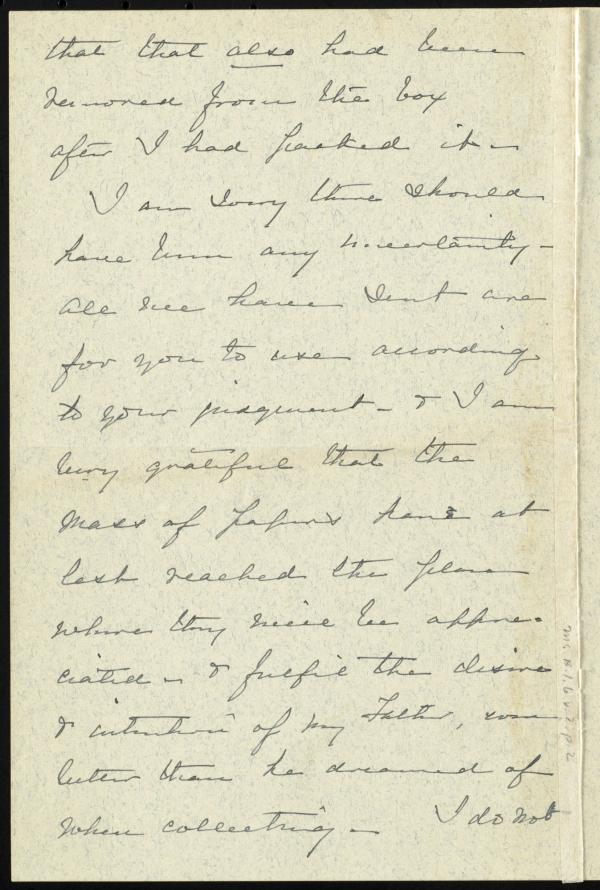 that that also had been
removed from the box
after I had packed it -
I am sorry there should
have been any uncertainty -
all we have sent are
for you to use according
to your judgment - & I am
very grateful that the
mass of papers have at
last reached the place
where they will be appre-
ciated - & fulfil the desire
& intention of my Father, even
better than he dreamed of
when collecting - I do not